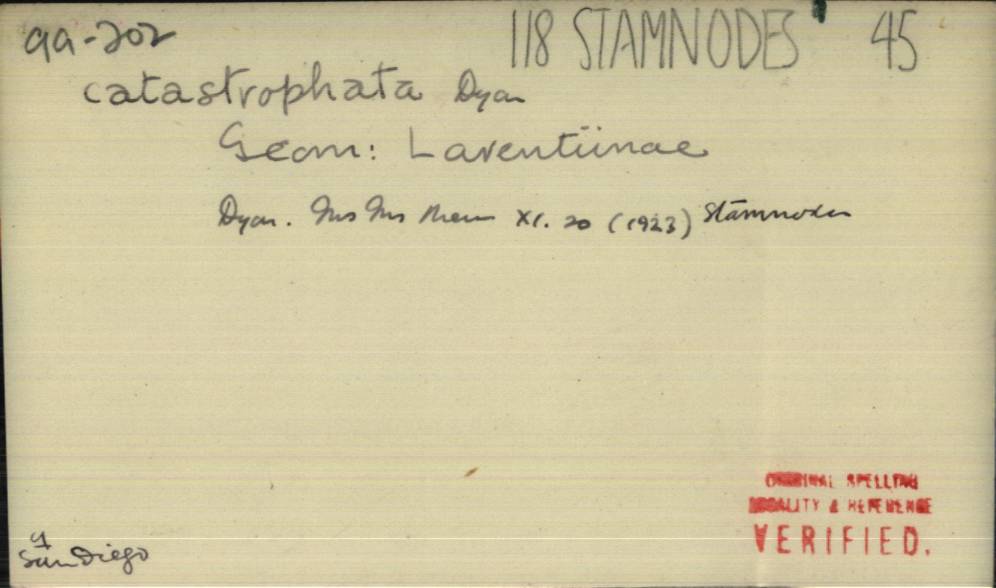 99-202 118 STAMNODES 45
catastrophata Dyar
Geom: Larentiinae
Dyar. Ins Ins Men XI. 20 (1923) Stamnodes
ORIGINAL SPELLING
LOCALITY & REFERENCE
VERIFIED.
San Diego